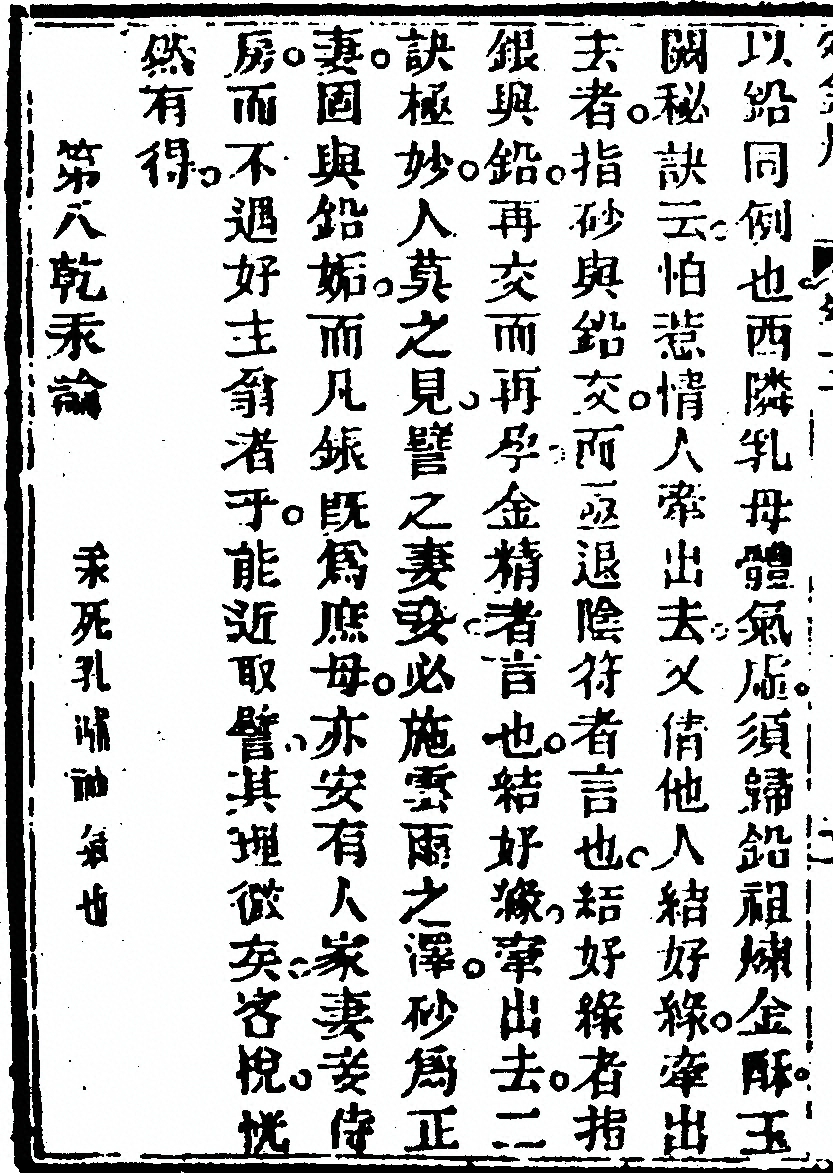 以鉛同例也西隣乳母體氣虛須歸鉛祖煉金酥玉
闕秘訣云怕惹情人牽出去又倩他人結好緣牽出
去者指砂與鉛交而亟退陰符者言也結好緣者指
銀與鉛再交而再孕金精者言也結好緣牽出去二
訣極妙人莫之見譬之妻妾必施雲雨之澤砂為正
妻固與鉛姤而凡銀既為庶母亦安有人家妻妾侍
房而不遇好主翁者乎能近取譬其理微矣客悅恍
然有得
第八乾汞論
汞死孔神氣也